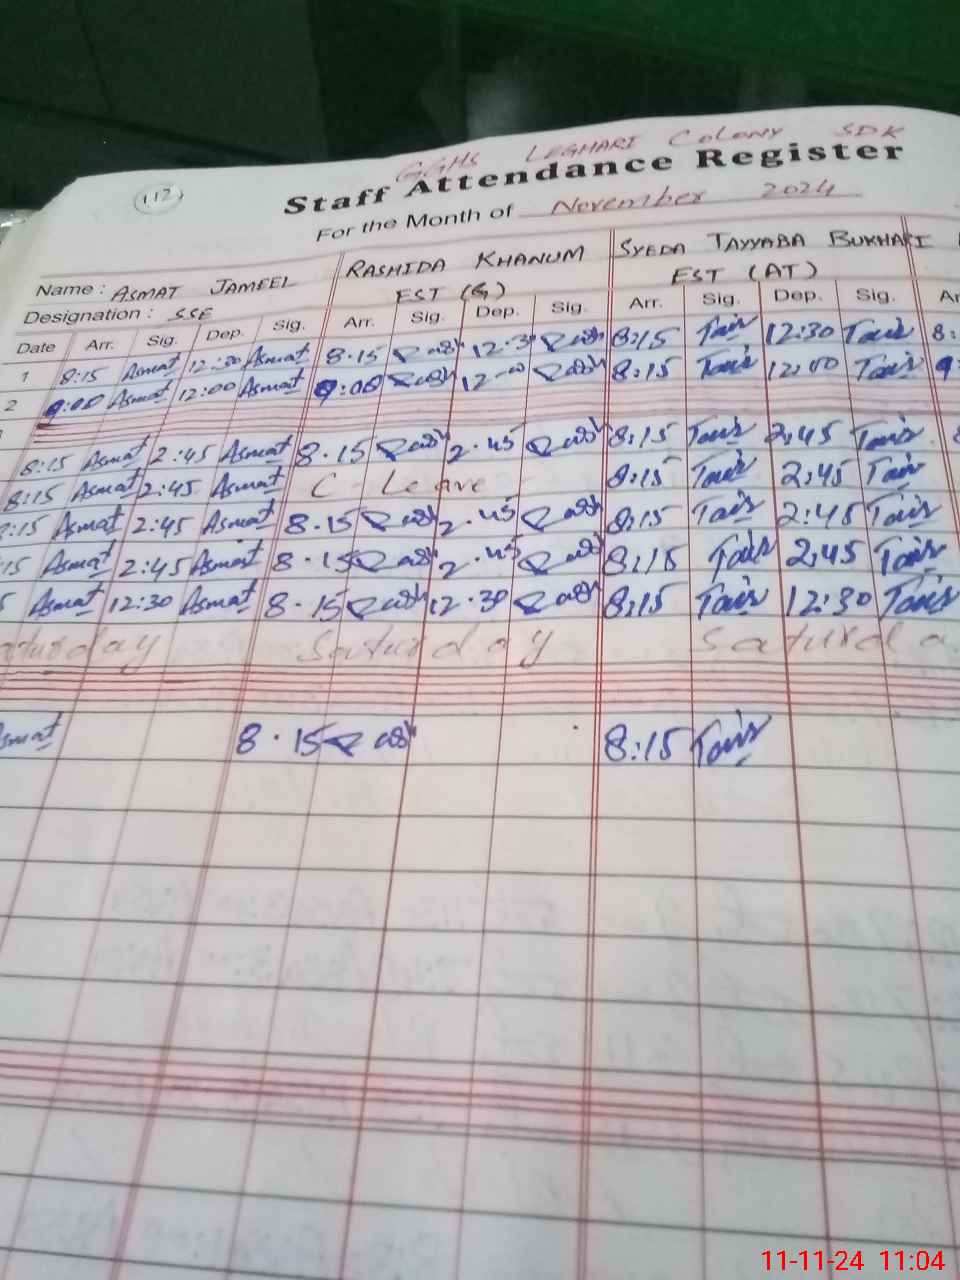 GGHS LEGHARI COLONY SDK
112
Staff Attendance Register
For the Month of November 2024
Name : ASMAT JAMEEL RASHIDA KHANUM SYEDA TAYYABA BUKHARI
Designation : SSE EST (G) EST (AT)
Date Arr. Sig. Dep. Sig. Arr. Sig. Dep. Sig. Arr. Sig. Dep. Sig. Ar
1 8:15 Asmat 12:30 Asmat 8.15 12.3 8:15 12:30 8:
2 9:00 Asmat 12:00 Asmat 9:00 12-00 8:15 12:00 9
8:15 Asmat 2:45 Asmat 8.15 2.45 8:15 2:45
8:15 Asmat 2:45 Asmat C - Leave 8:15 2:45
:15 Asmat 2:45 Asmat 8.15 2.45 8:15 2:45
15 Asmat 2:45 Asmat 8.15 2.45 8:15 2:45
Asmat 12:30 Asmat 8.15 12.30 8:15 12:30
aturday Saturday Saturda
smat 8.15 8:15
11-11-24 11:04